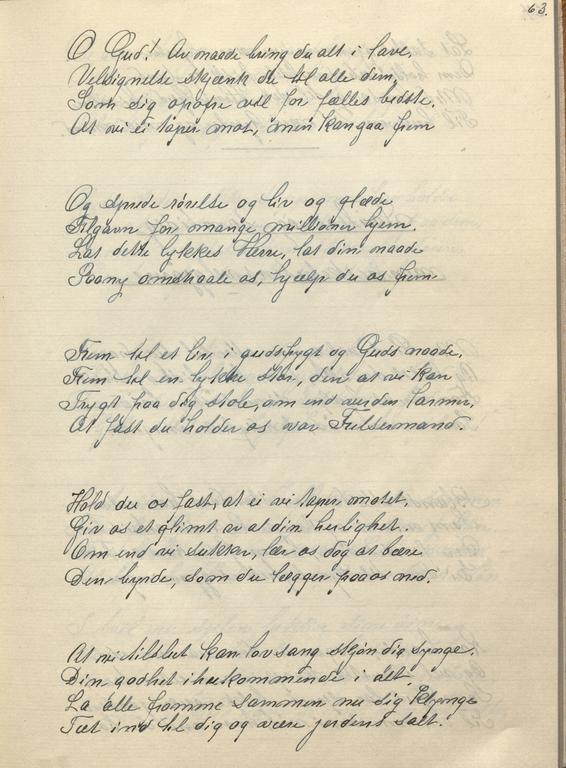 63.
O Gud! Av naade bring du alt i lave.
Velsignelse skjænk du til alle dem,
Som sig opofre vil for fælles bedste,
At vi ei taper mot, men kan gaa frem
Og sprede rørelse og liv og glæde
Tilgavn for mange millioner hjem.
Lat dette lykkes Herre, lat din naade
Paany omstraale os, hjælp du os frem
Frem til et liv i gudsfrygt og Guds naade,
Frem til en lykke stor, den at vi kan
Trygt paa dig stole, om end verden larmer,
At fast du holder os vor Frelsermand.
Hold du os fast, at ei vi taper motet,
Giv os et glimt av al din herlighet.
Om end vi sukker, lær os dog at bære
Den byrde, som du lægger paa os ned.
At vi tilslut kan lovsang skjøn dig synge.
Din godhet ihukommende i alt.
La alle fromme sammen nu sig klynge
Tæt ind til dig og være jordens salt!